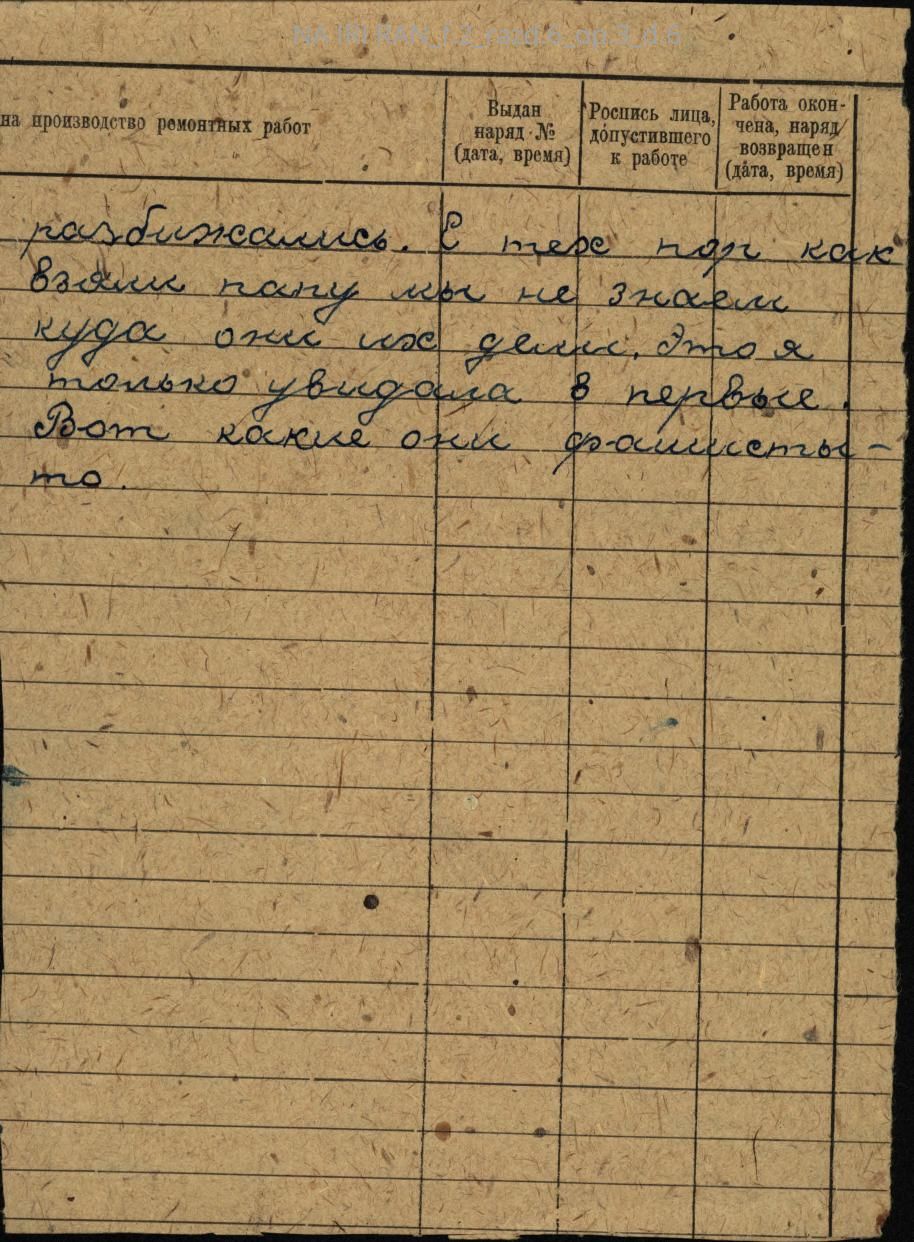 NA IRI RAN_f.2_razd.6_op.3_d.6
на производство ремонтных работ
Выдан
наряд №
(дата, время)
Роспись лица,
допустившего
к работе
Работа окон-
чена, наряд
возвращен
(дата, время)
разбижались. С тех пор как
взяли папу мы не знаем
куда они их дели. Это я
только увидала в первые.
Вот какие они фашисты-
то.